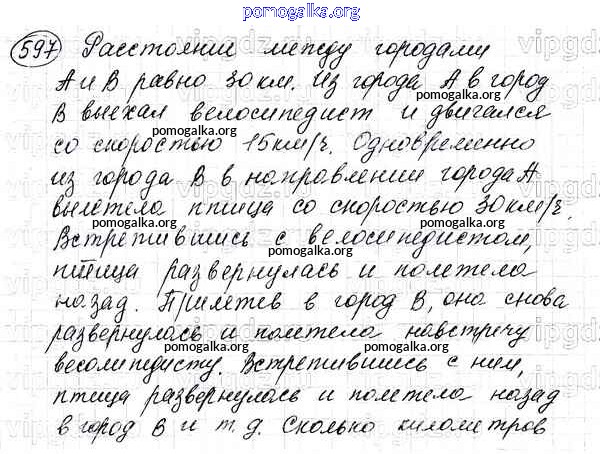 pomogalka.org
597 Расстояние между городами
А и В равно 30 км. Из города А в город
В выехал велосипедист и двигался
pomogalka.org
со скоростью 15 км/ч. Одновременно
из города В в направлении города А
pomogalka.org
вылетела птица со скоростью 30 км/ч.
pomogalka.org
Встретившись с велосипедистом,
птица развернулась и полетела
pomogalka.org
назад. Прилетев в город В, она снова
развернулась и полетела навстречу
pomogalka.org
весолипидисту. Встретившись с ним,
птица развернулась и полетела назад
pomogalka.org
в город В и т. д. Сколько километров